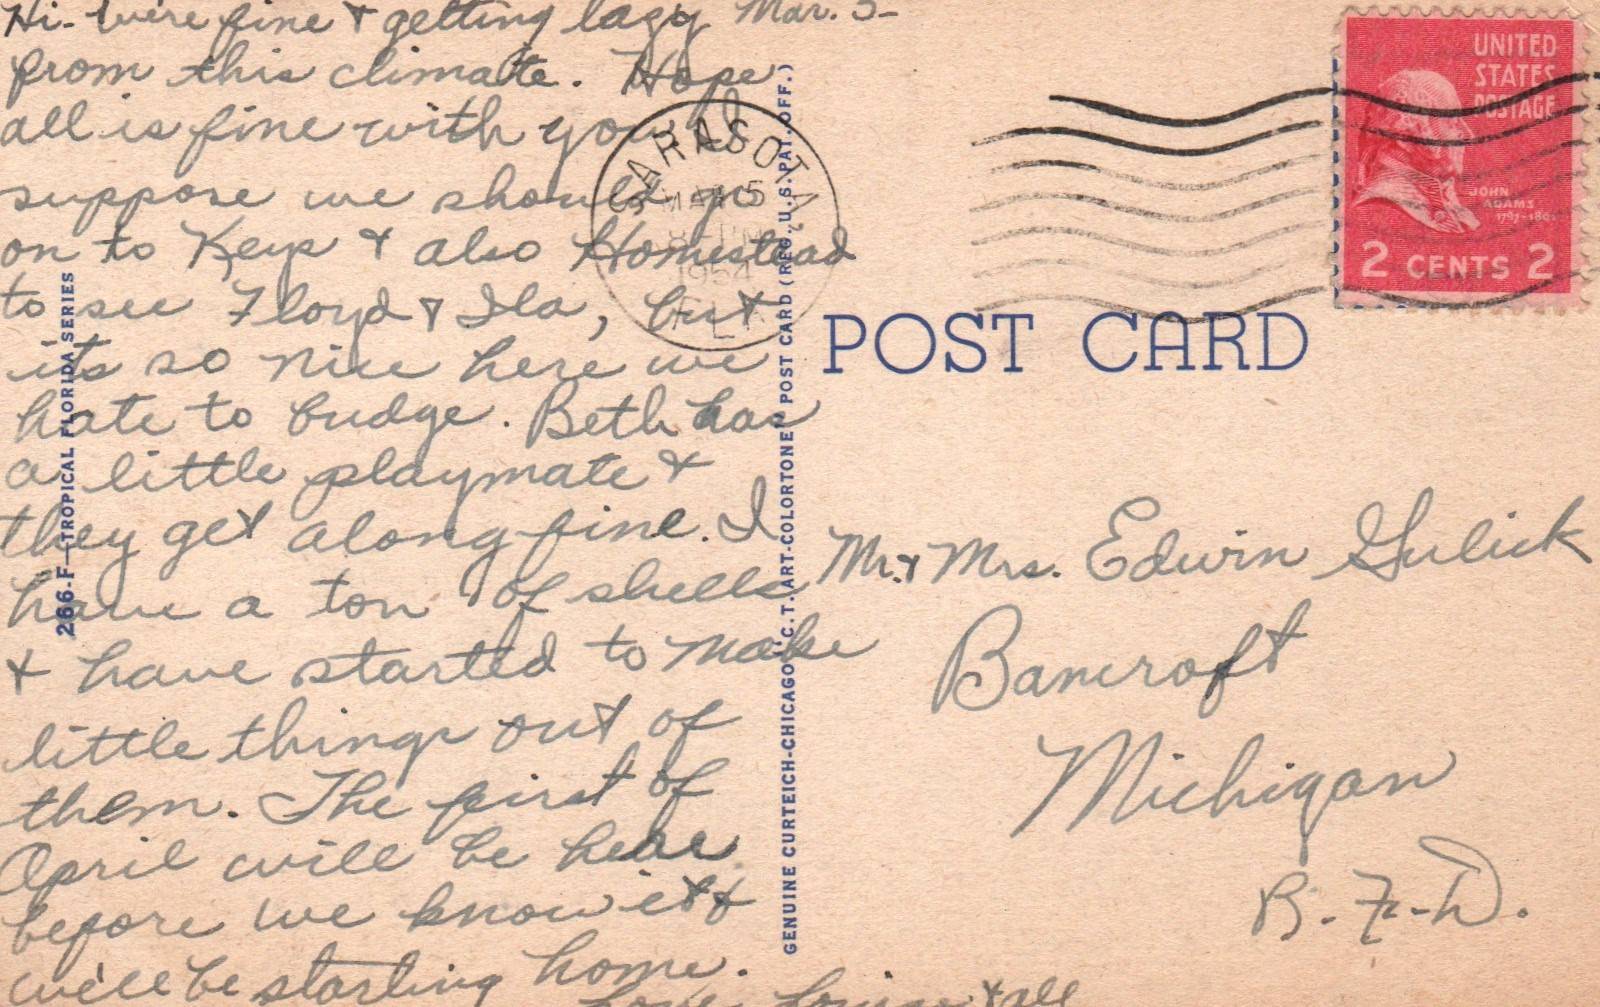 Hi- We're fine & getting lazy Mar. 5-
from this climate. Hope
all is fine with you. I
suppose we should go
on to Keys & also Homestead
to see Floyd & Ila, but
it's so nice here we
hate to budge. Beth has
a little playmate &
they get along fine. I
have a ton of shells
& have started to make
little things out of
them. The first of
April will be here
before we know it &
we'll be starting home.
Love Louise & all
266-F—TROPICAL FLORIDA SERIES
GENUINE CURTEICH-CHICAGO "C.T. ART-COLORTONE" POST CARD (REG. U.S. PAT. OFF.)
SARASOTA
MAR 5
PM
1954
FLA
UNITED
STATES
POSTAGE
JOHN
ADAMS
1797-1801
2 CENTS 2
POST CARD
Mr. & Mrs. Edwin Gulick
Bancroft
Michigan
R.F.D.